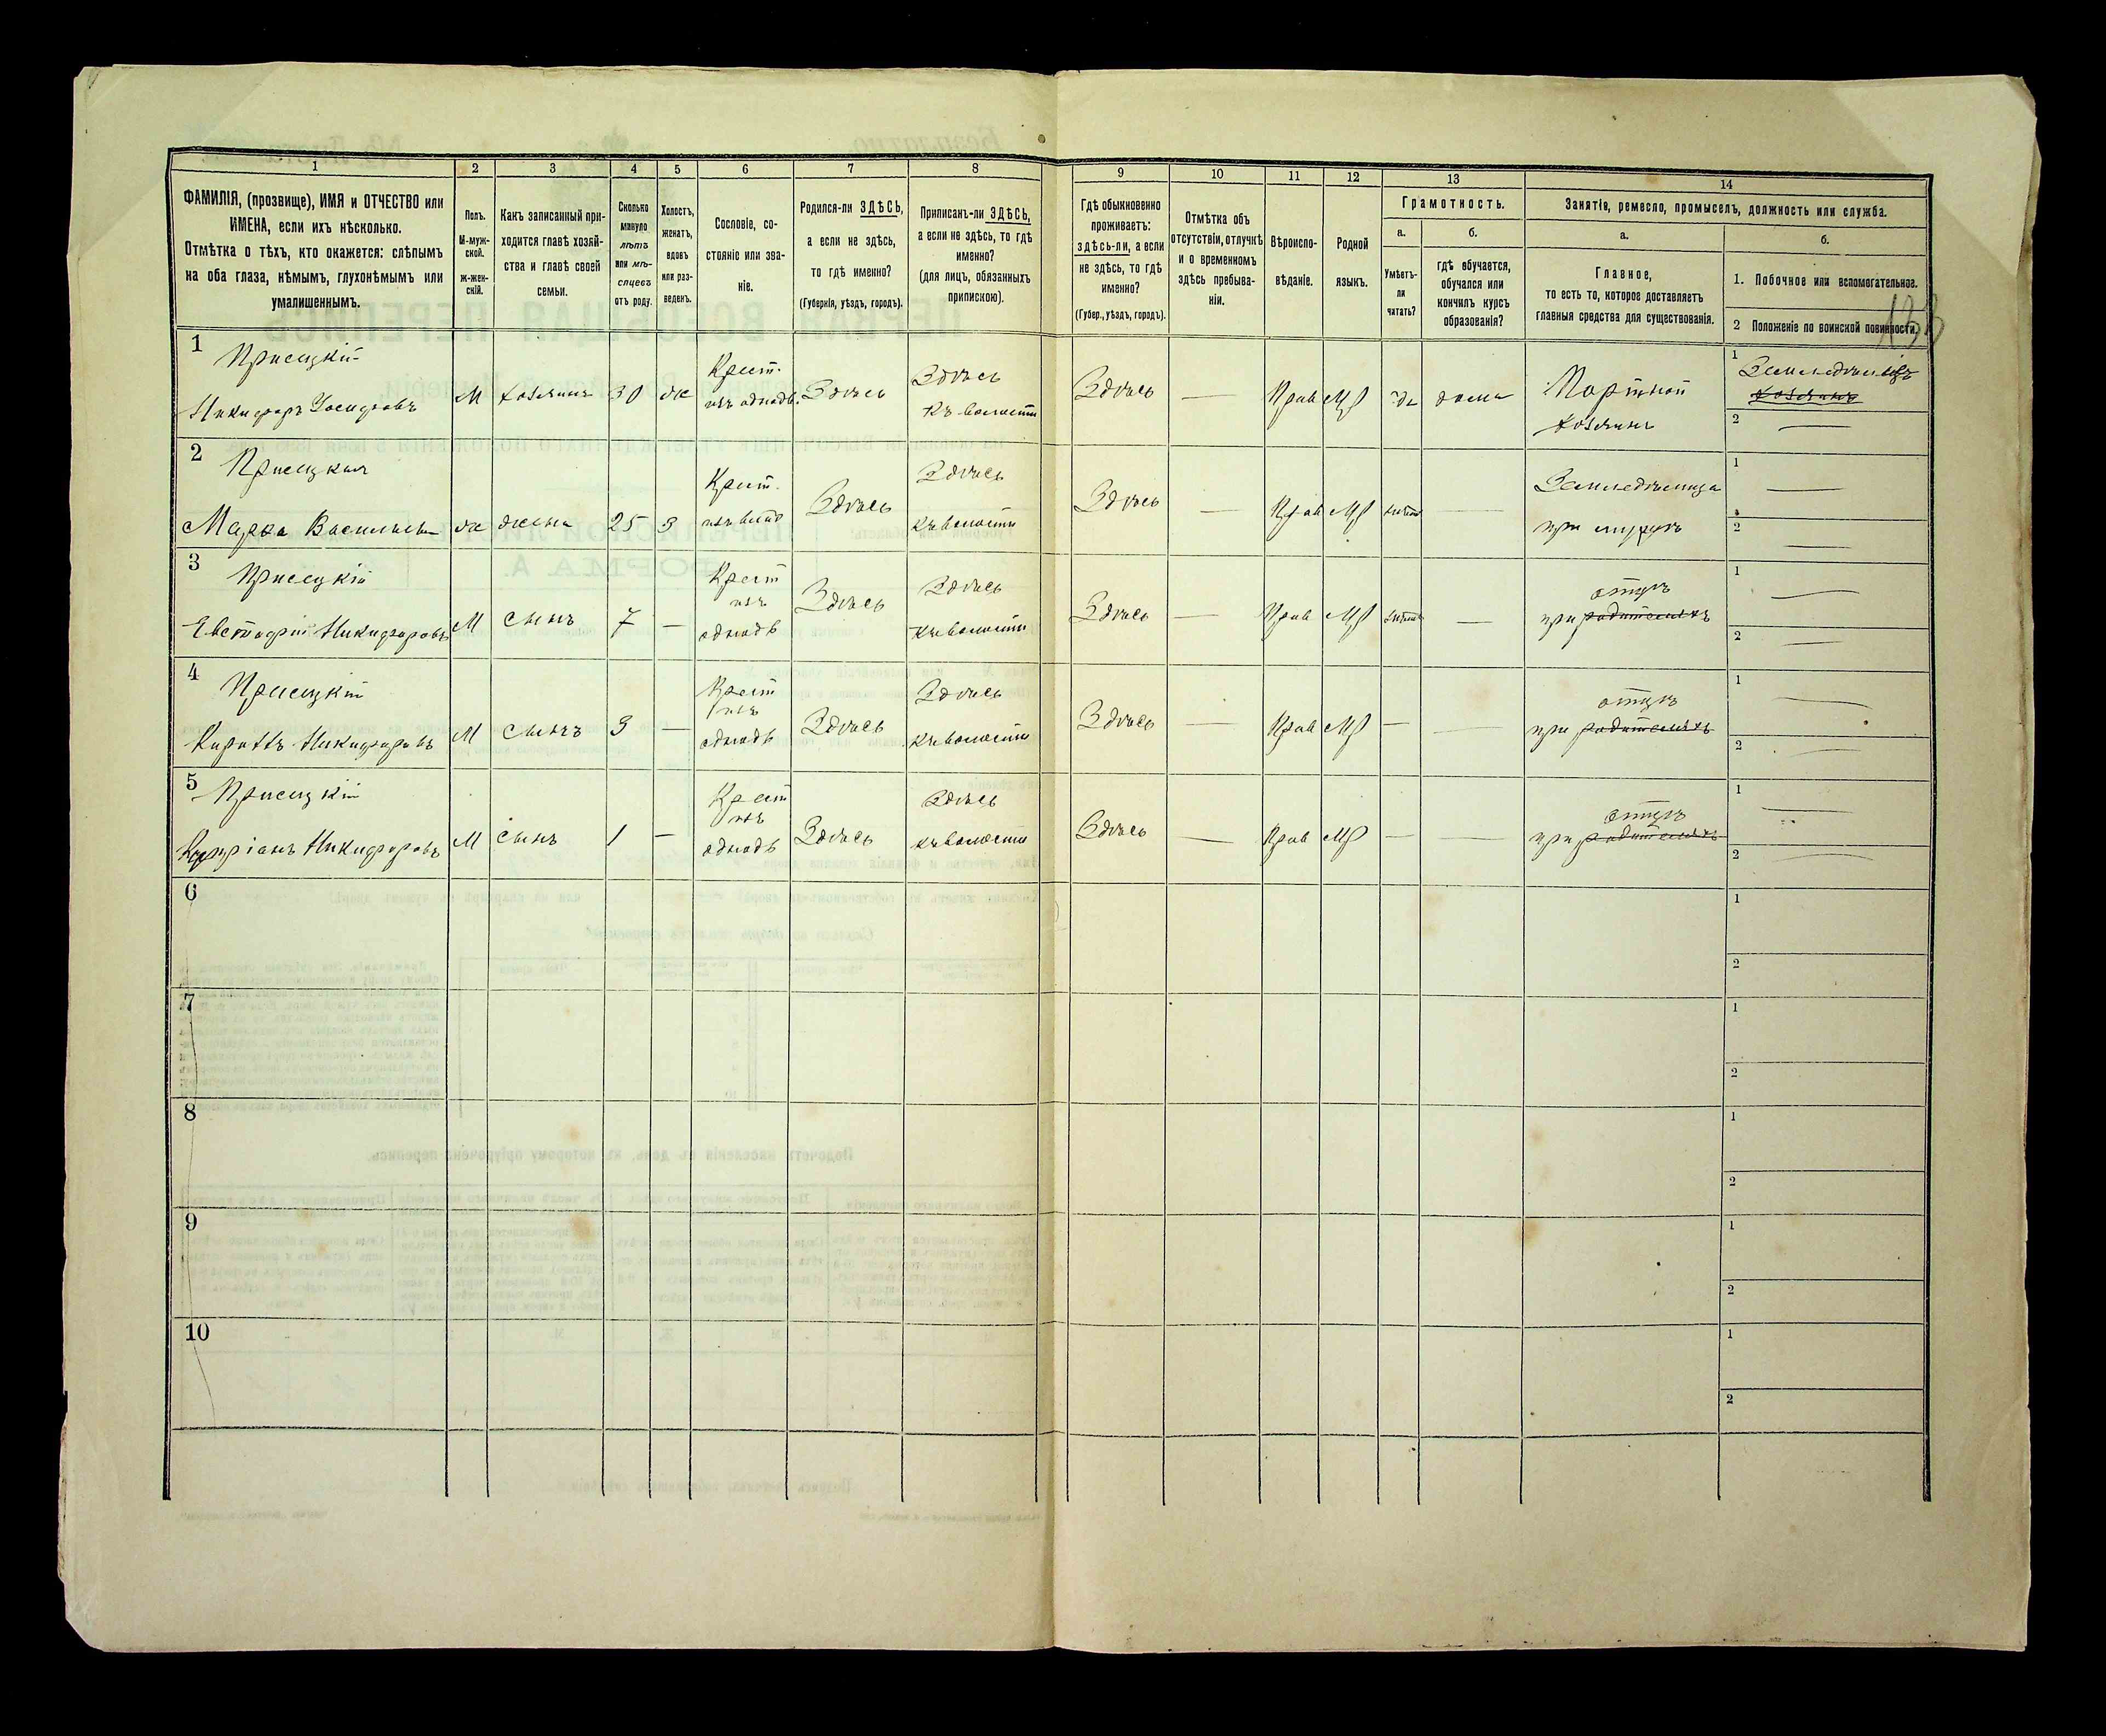 1
2
3
4
5
6
7
8
9
10
11
12
13
14
ФАМИЛІЯ, (прозвище), ИМЯ и ОТЧЕСТВО или
ИМЕНА, если ихъ нѣсколько.
Отмѣтка о тѣхъ, кто окажется: слѣпымъ
на оба глаза, нѣмымъ, глухонѣмымъ или
умалишеннымъ.
Полъ.
М-муж-
ской.
ж-жен-
скій.
Какъ записанный при-
ходится главѣ хозяй-
ства и главѣ своей
семьи.
Сколько
минуло
лѣтъ
или мѣ-
сяцевъ
отъ роду.
Холостъ,
женатъ,
вдовъ
или раз-
веденъ.
Сословіе, со-
стояніе или зва-
ніе.
Родился-ли ЗДѢСЬ,
а если не здѣсь,
то гдѣ именно?
(Губернія, уѣздъ, городъ).
Приписанъ-ли ЗДѢСЬ,
а если не здѣсь, то гдѣ
именно?
(для лицъ, обязанныхъ
припискою).
Гдѣ обыкновенно
проживаетъ:
здѣсь-ли, а если
не здѣсь, то гдѣ
именно?
(Губер., уѣздъ, городъ).
Отмѣтка объ
отсутствіи, отлучкѣ
и о временномъ
здѣсь пребыва-
ніи.
Вѣроиспо-
вѣданіе.
Родной
языкъ.
Грамотность.
а.
Умѣетъ-
ли
читать?
б.
гдѣ обучается,
обучался или
кончилъ курсъ
образованія?
Занятіе, ремесло, промыселъ, должность или служба.
а.
Главное,
то есть то, которое доставляетъ
главныя средства для существованія.
б.
1. Побочное или вспомогательное.
2 Положеніе по воинской повинности.
1
Присецкій
Никифоръ Іосифовъ
М
хозяинъ
30
ж
Крест.
изъ однодв.
Здѣсь
Здѣсь
къ волости
Здѣсь
—
Прав
Мр
да
дома
Портной
хозяинъ
1
Земледѣлецъ
хозяинъ
2 —
2
Присецкая
Васильева
ж
жена
25
з
Крест.
Здѣсь
Здѣсь
къ волости
Здѣсь
—
Прав
Мр
—
Земледѣлица
при мужѣ
1 —
2 —
3
Присецкій
Евстафій Никифоровъ
М
сынъ
7
—
Крест
изъ
однодв
Здѣсь
Здѣсь
къ волости
Здѣсь
—
Прав
Мр
—
отцѣ
при родителяхъ
1 —
2 —
4
Присецкій
Никифоровъ
М
сынъ
3
—
Крест
изъ
однодв
Здѣсь
Здѣсь
къ волости
Здѣсь
—
Прав
Мр
—
—
отцѣ
при родителяхъ
1 —
2 —
5
Присецкій
Кипріанъ Никифоровъ
М
сынъ
1
—
Крест
изъ
однодв
Здѣсь
Здѣсь
къ волости
Здѣсь
—
Прав
Мр
—
—
отцѣ
при родителяхъ
1 —
2 —
6
1
2
7
1
2
8
1
2
9
1
2
10
1
2